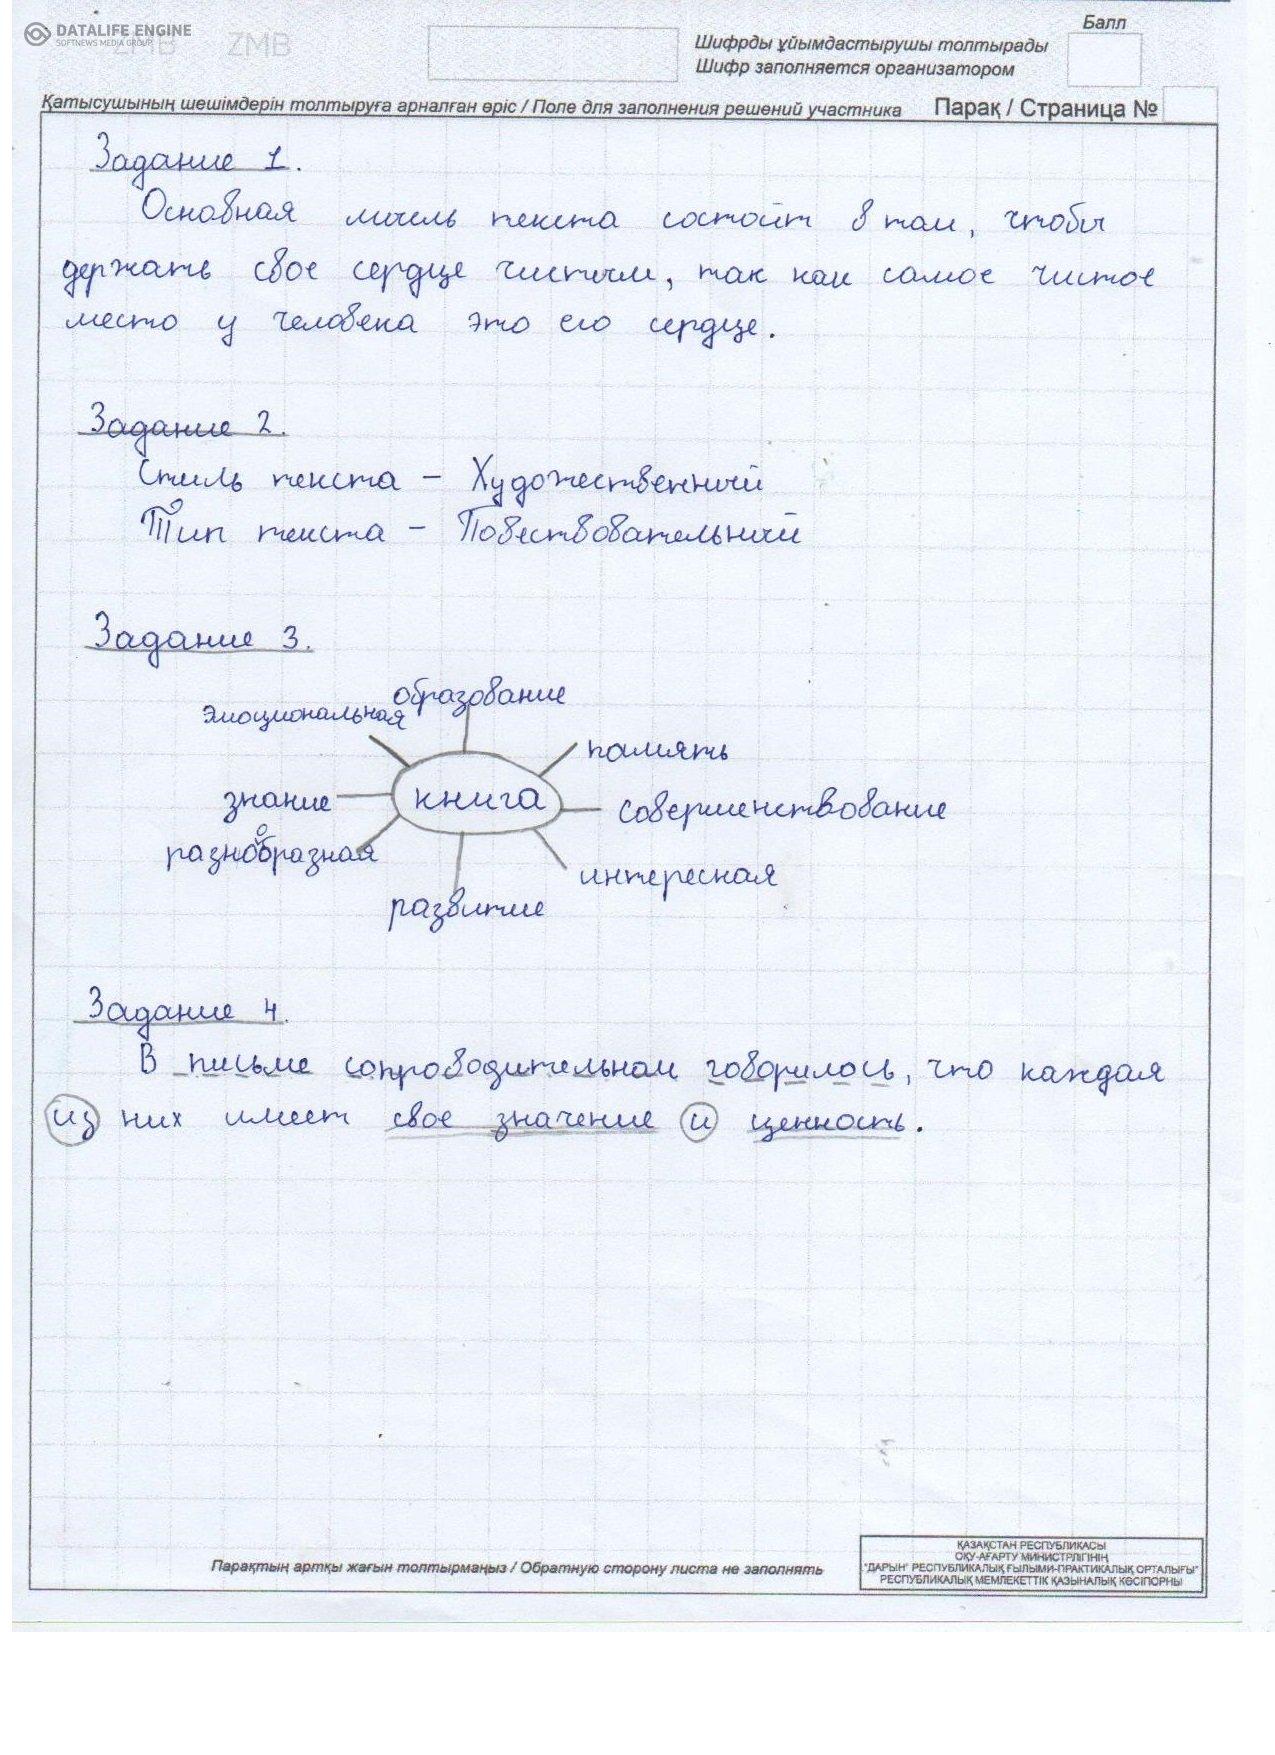 DATALIFE ENGINE
SOFTNEWS MEDIA GROUP
ZMB ZMB
Балл
Шифрды ұйымдастырушы толтырады
Шифр заполняется организатором
Қатысушының шешімдерін толтыруға арналған өріс / Поле для заполнения решений участника Парақ / Страница №
Задание 1.
Основная мысль текста состоит в том, чтобы
держать свое сердце чистым, так как самое чистое
место у человека это его сердце.
Задание 2.
Стиль текста – Художественный
Тип текста – Повествовательный
Задание 3.
образование
эмоциональная
память
знание
книга
совершенствование
разнообразная
интересная
развитие
Задание 4.
В письме сопроводительном говорилось, что каждая
из них имеет свое значение и ценность.
Парақтың артқы жағын толтырмаңыз / Обратную сторону листа не заполнять
ҚАЗАҚСТАН РЕСПУБЛИКАСЫ
ОҚУ-АҒАРТУ МИНИСТРЛІГІНІҢ
"ДАРЫН" РЕСПУБЛИКАЛЫҚ ҒЫЛЫМИ-ПРАКТИКАЛЫҚ ОРТАЛЫҒЫ"
РЕСПУБЛИКАЛЫҚ МЕМЛЕКЕТТІК ҚАЗЫНАЛЫҚ КӘСІПОРНЫ